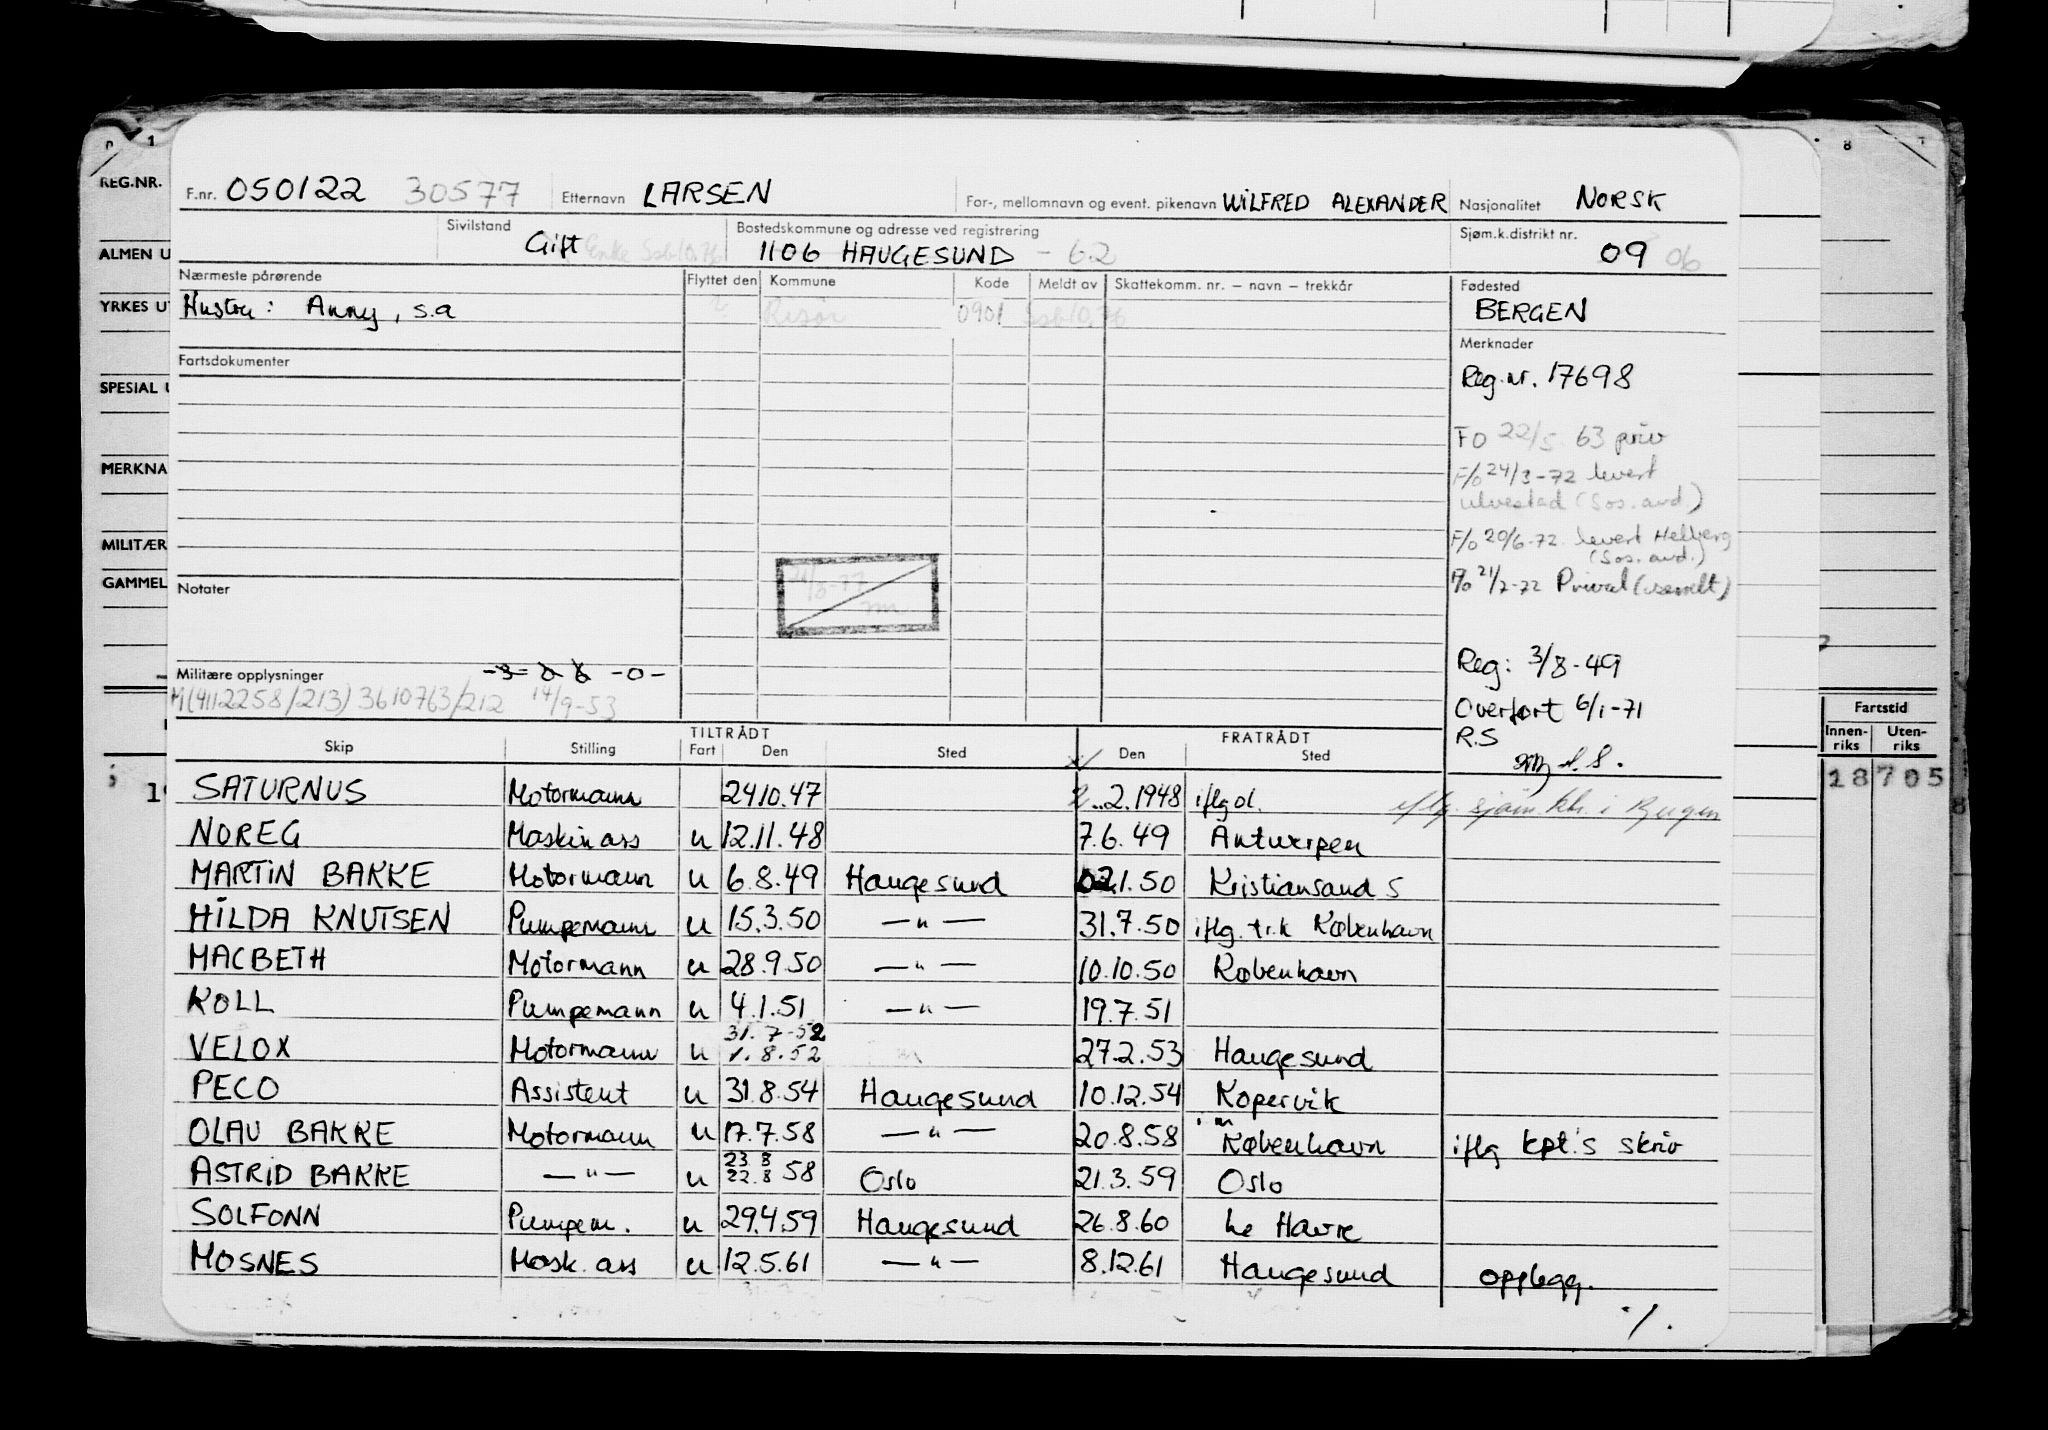 REG.NR.
ALMEN U
YRKES UT
SPESIAL U
MERKNA
MILITÆR
GAMMEL
F.nr. 050122 30577 Etternavn LARSEN For-, mellomnavn og event. pikenavn WILFRED ALEXANDER Nasjonalitet NORSK
Sivilstand Gift Enke Ssb 10.76 Bostedskommune og adresse ved registrering 1106 HAUGESUND - 62 Sjøm.k.distrikt nr. 09 06
Nærmeste pårørende Flyttet den Kommune Kode Meldt av Skattekomm. nr. – navn – trekkår Fødested
Hustru: Anny, s.a Risør 0901 Ssb 10.76 BERGEN
Fartsdokumenter Merknader
Reg.nr. 17698
FO 22/5 63 priv
F/o 24/3-72 levert
Ulvestad (Sos.avd)
F/o 20/6-72 levert Helberg
(Sos. avd.)
F/o 21/7-72 Privat
Notater
Militære opplysninger -o-
M(4112258/213) 3610763/212 14/9-53
Reg: 3/8-49
Overført 6/1-71
R.S
TILTRÅDT FRATRÅDT
Skip Stilling Fart Den Sted Den Sted
Fartstid
Innen-riks Uten-riks
18705
SATURNUS Motormann 24.10.47 2.1948 iflg ol. iflg. sjøm.ktr. i Bergen
NOREG Maskinass u 12.11.48 7.6.49 Antwerpen
MARTIN BAKKE Motormann u 6.8.49 Haugesund 02.1.50 Kristiansand S
HILDA KNUTSEN Pumpemann u 15.3.50 —"— 31.7.50 iflg. t.k København
MACBETH Motormann u 28.9.50 —"— 10.10.50 København
KOLL Pumpemann u 4.1.51 —"— 19.7.51
31.7-52
VELOX Motormann u 1.8.52 27.2.53 Haugesund
PECO Assistent u 31.8.54 Haugesund 10.12.54 Kopervik
OLAV BAKKE Motormann u 17.7.58 —"— 20.8.58 København iflg kpt's skriv
23 8
ASTRID BAKKE —"— u 22.8 58 Oslo 21.3.59 Oslo
SOLFONN Pumpem. u 29.4.59 Haugesund 26.8.60 Le Havre
MOSNES Mask. ass u 12.5.61 —"— 8.12.61 Haugesund opplegg.
./.